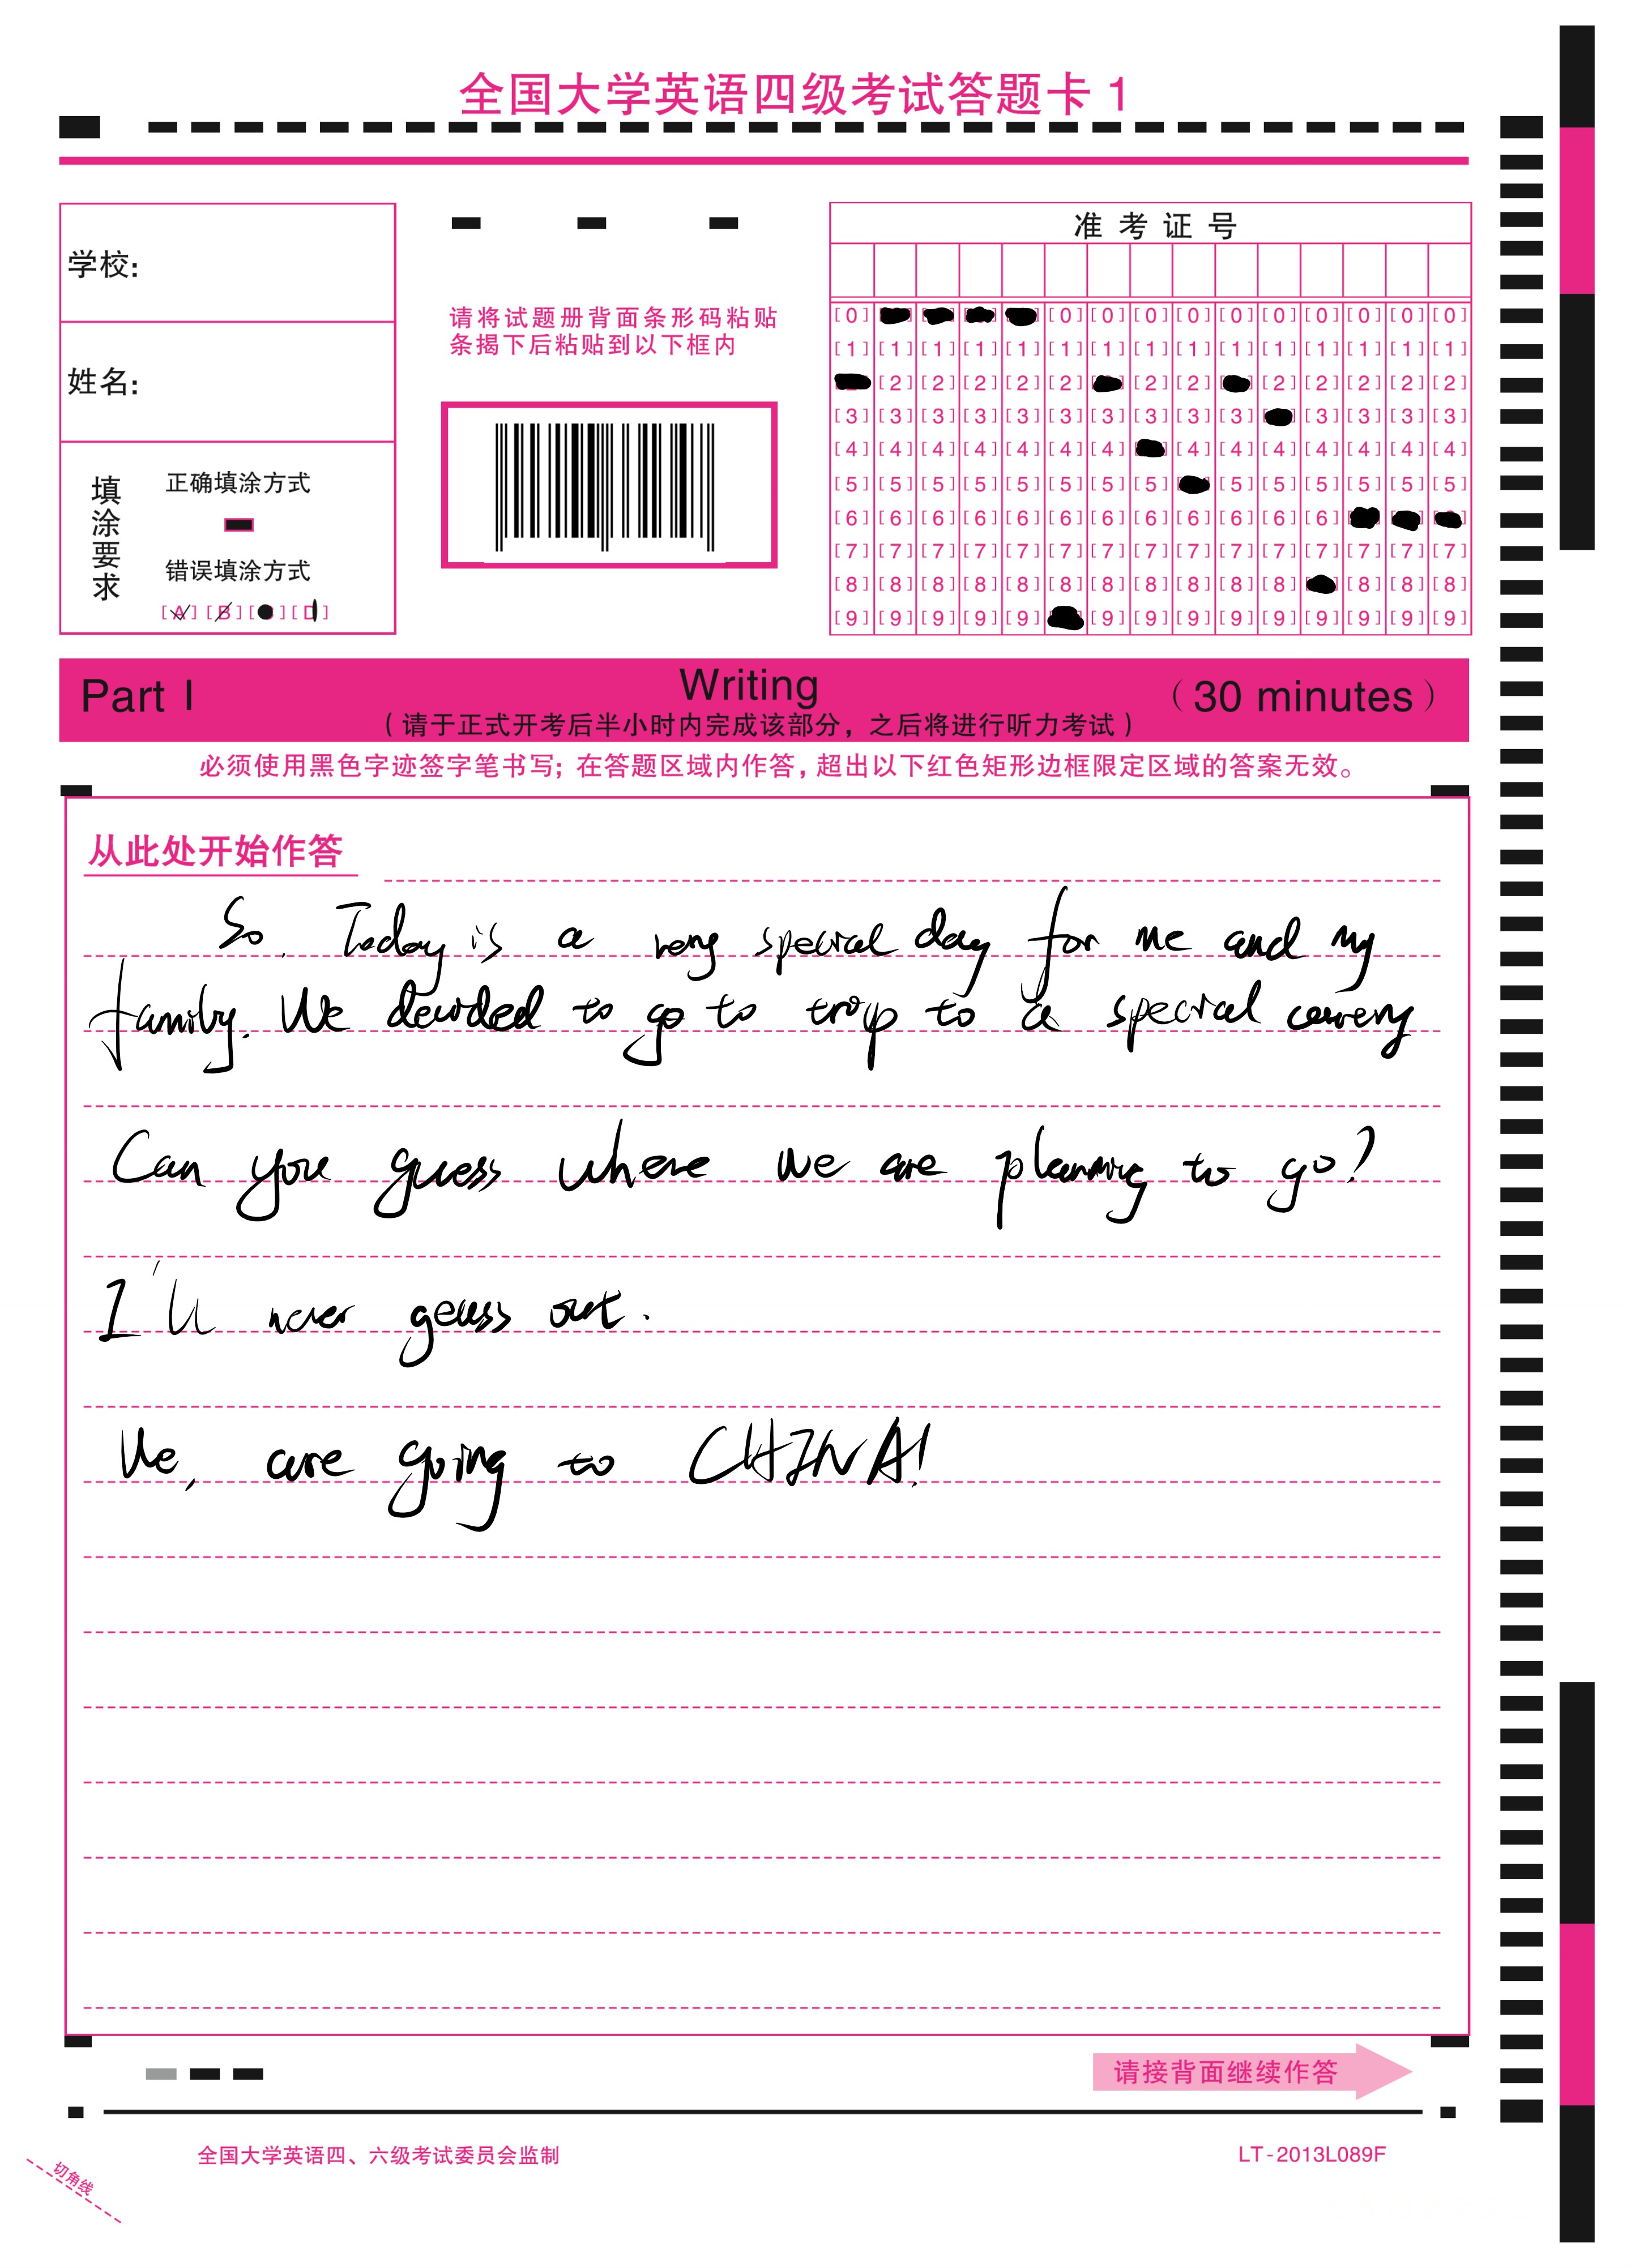 全国大学英语四级考试答题卡1
学校:
姓名:
填涂要求
正确填涂方式
错误填涂方式
[A] [B] [C] [D]
请将试题册背面条形码粘贴
条揭下后粘贴到以下框内
准考证号
[0] [0] [0] [0] [0] [0] [0] [0] [0] [0]
[1] [1] [1] [1] [1] [1] [1] [1] [1] [1] [1] [1] [1] [1] [1]
[2] [2] [2] [2] [2] [2] [2] [2] [2] [2] [2] [2]
[3] [3] [3] [3] [3] [3] [3] [3] [3] [3] [3] [3] [3] [3]
[4] [4] [4] [4] [4] [4] [4] [4] [4] [4] [4] [4] [4] [4]
[5] [5] [5] [5] [5] [5] [5] [5] [5] [5] [5] [5] [5] [5]
[6] [6] [6] [6] [6] [6] [6] [6] [6] [6] [6] [6]
[7] [7] [7] [7] [7] [7] [7] [7] [7] [7] [7] [7] [7] [7] [7]
[8] [8] [8] [8] [8] [8] [8] [8] [8] [8] [8] [8] [8] [8]
[9] [9] [9] [9] [9] [9] [9] [9] [9] [9] [9] [9] [9] [9]
Part I Writing （30 minutes）
（请于正式开考后半小时内完成该部分，之后将进行听力考试）
必须使用黑色字迹签字笔书写；在答题区域内作答，超出以下红色矩形边框限定区域的答案无效。
从此处开始作答
So. Today is a very special day for me and my
family. We decided to go to trip to a special
Can you guess where we are planning to go?
I'll never guess out.
We, are going to CHINA!
请接背面继续作答
全国大学英语四、六级考试委员会监制
LT-2013L089F
切角线